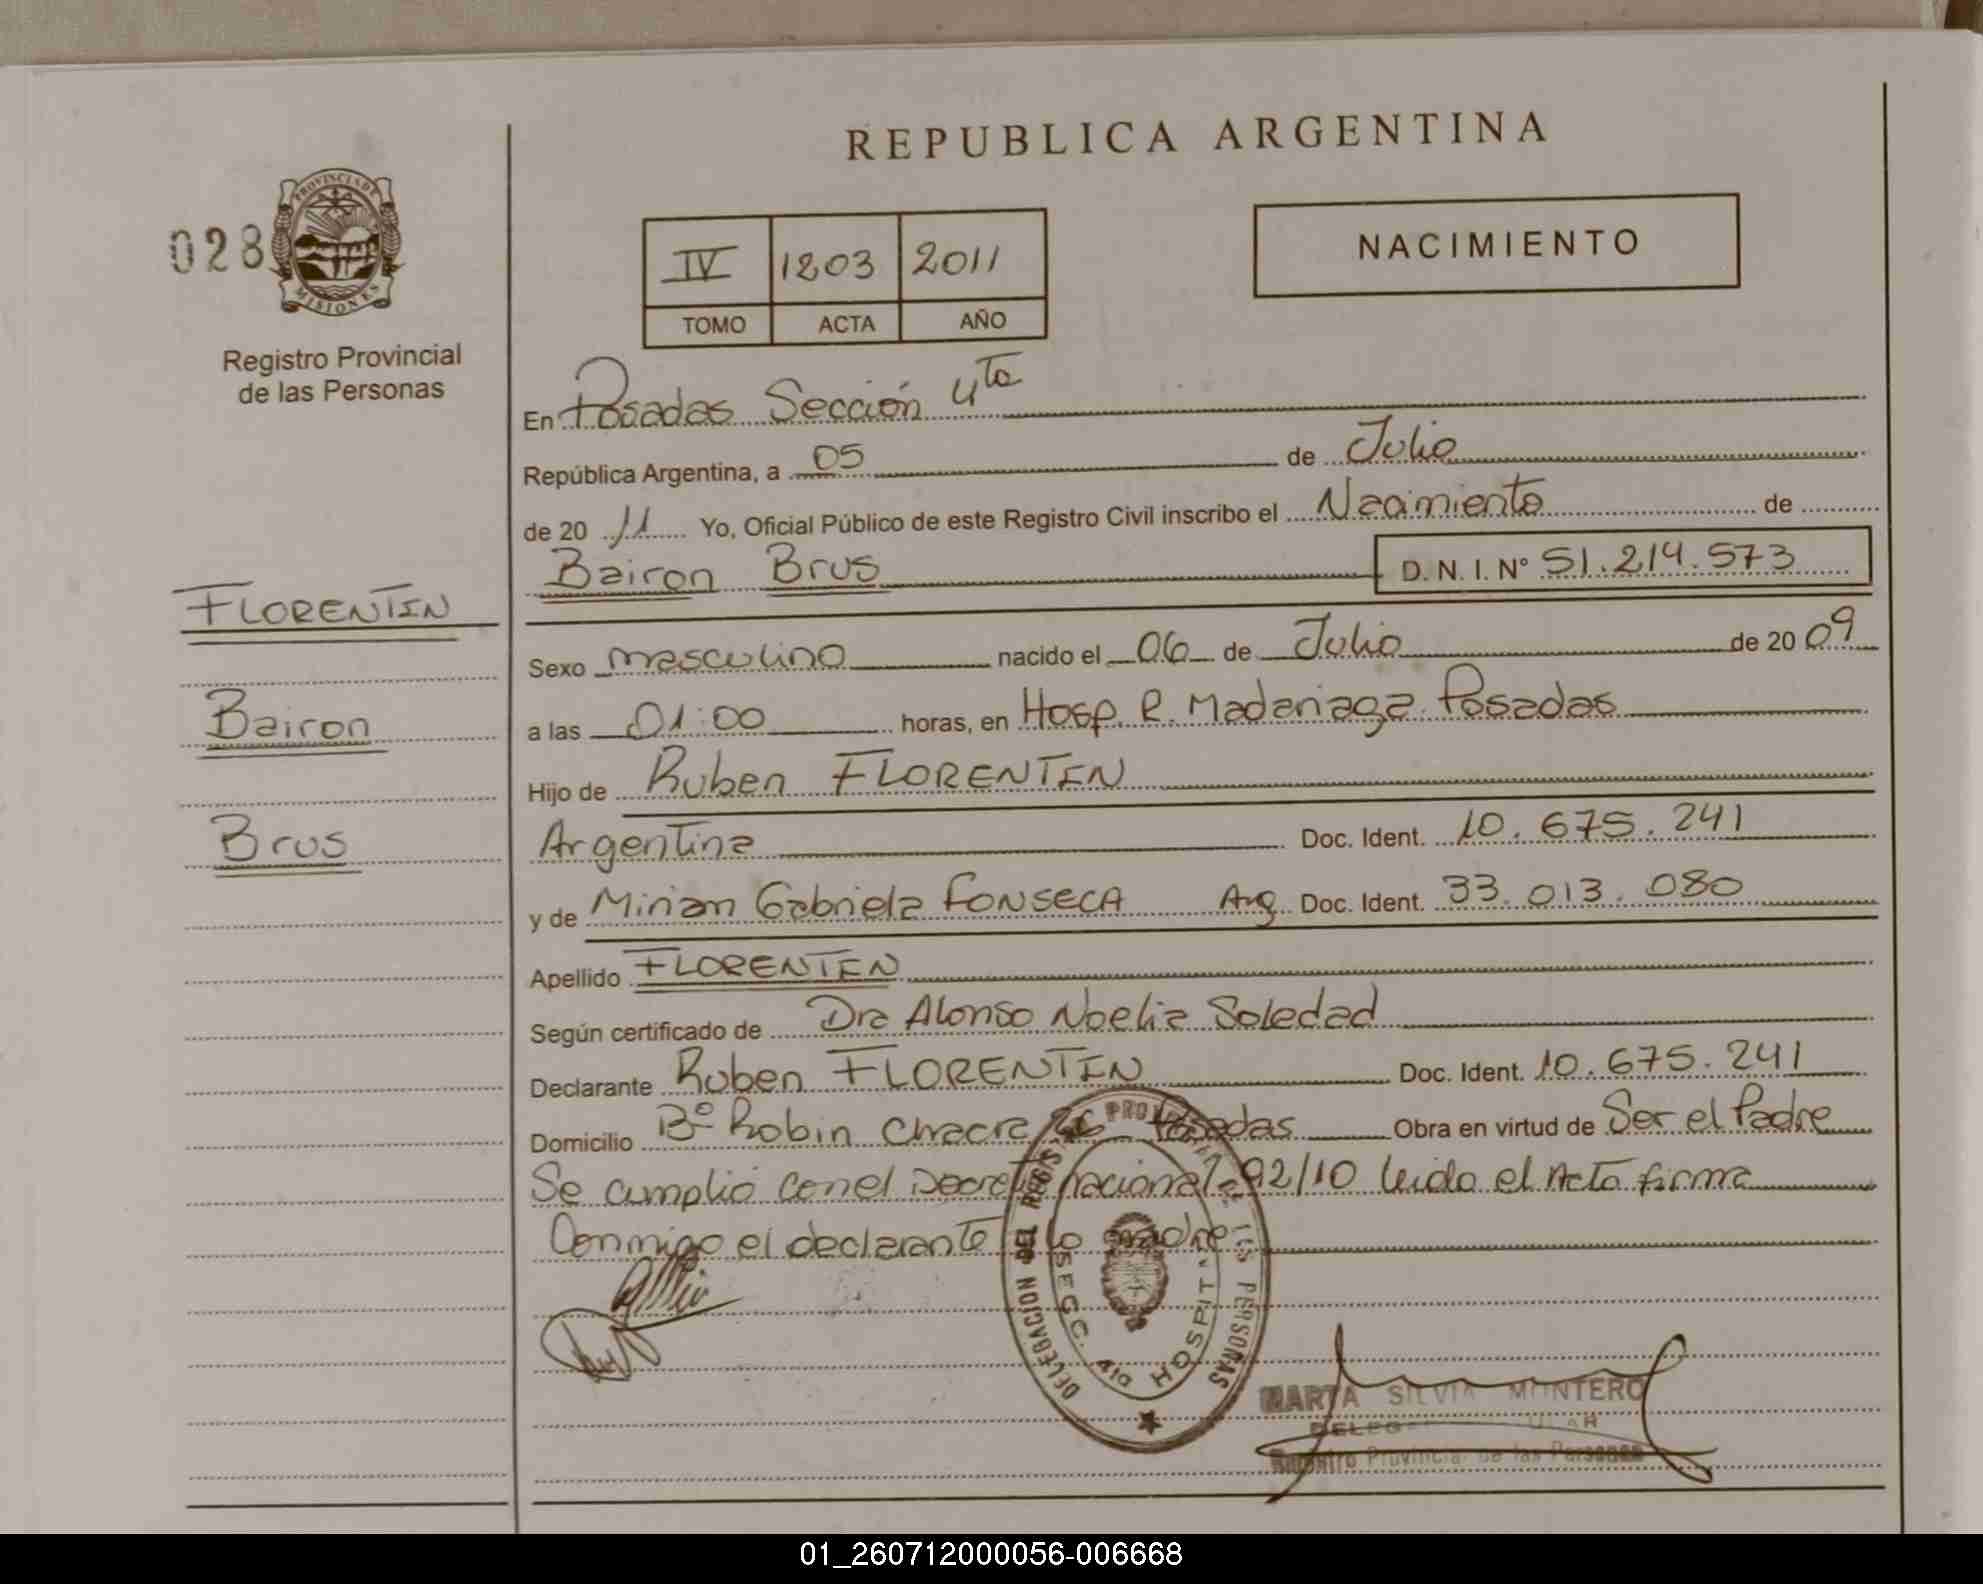 REPUBLICA ARGENTINA
028
PROVINCIA DE
MISIONES
Registro Provincial
de las Personas
IV 1203 2011
TOMO ACTA AÑO
NACIMIENTO
En Posadas Sección 4ta
República Argentina, a 05 de Julio
de 20 11 Yo, Oficial Público de este Registro Civil inscribo el Nacimiento de
Bairon Brus D.N.I. Nº 51.214.573
FLORENTIN
Bairon
Brus
Sexo masculino nacido el 06 de Julio de 20 09
a las 01:00 horas, en Hosp. R. Madariaga Posadas
Hijo de Ruben FLORENTIN
Argentina Doc. Ident. 10.675.241
y de Mirian Gabriela FONSECA Arg. Doc. Ident. 33.013.080
Apellido FLORENTIN
Según certificado de Dra Alonso Noelia Soledad
Declarante Ruben FLORENTIN Doc. Ident. 10.675.241
Domicilio Bº Robin Chacra Posadas Obra en virtud de Ser el Padre
Se cumplió con el Decreto nacional 92/10 leido el Acta firma
Conmigo el declarante y la madre
DELEGACION DEL REGIST. PROVINCIAL DE LAS PERSONAS
SECC. 4ta HOSPITAL
MARTA SILVIA MONTERO
Registro Provincial de las Personas
01_260712000056-006668